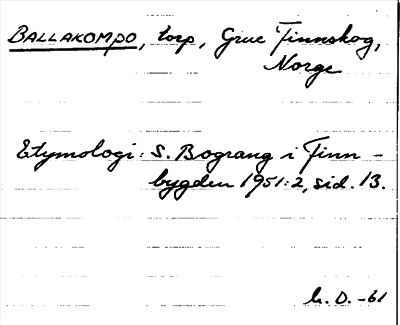 BALLAKOMPO, torp, Grue Finnskog,
Norge
Etymologi: S. Bograng i Finn-
bygden 1951:2, sid. 13.
h. D. -61